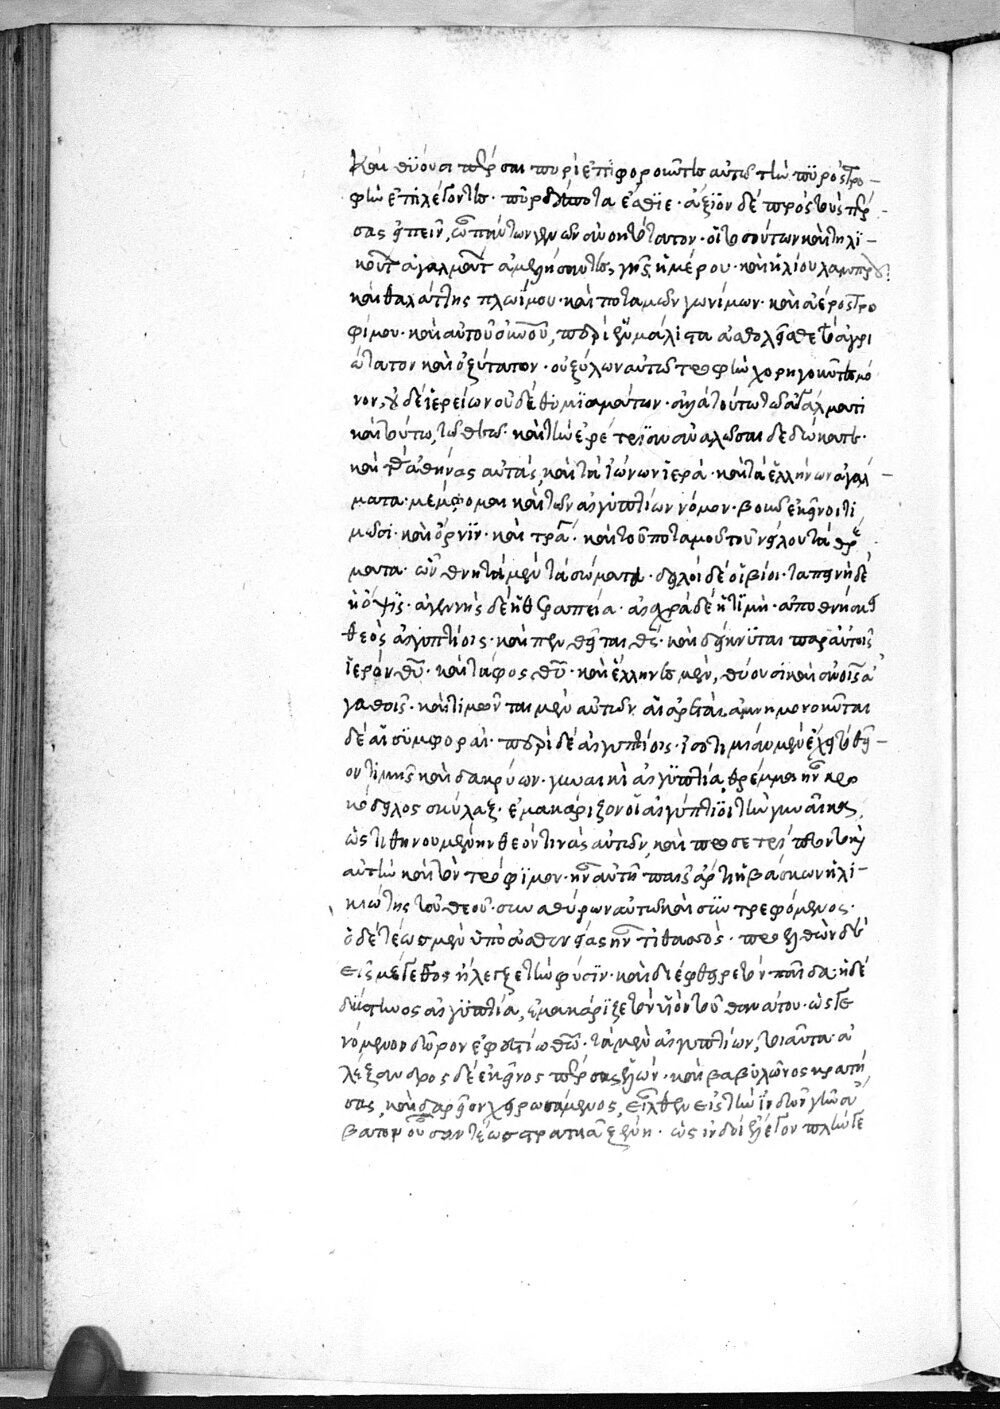 Καὶ θύουσι πέρσαι πυρὶ ἐπιφοροῦντες αὐτῶ τὴν πυρὸς τρο-
φὴν ἐπιλέγοντες· πῦρ δέσποτα ἔσθιε· ἄξιον δὲ πρὸς τοὺς πέρ-
σας εἰπεῖν, ὦ πάντων γενῶν ἀνοητότατον· οἳ τοσούτων καὶ τηλι-
κούτων ἀγαλμάτων ἀμελήσαντες, γῆς ἡμέρου· καὶ ἡλίου λαμπροῦ·
καὶ θαλάττης πλωΐμου· καὶ ποταμῶν γονίμων· καὶ ἀέρος τρο
φίμου· καὶ αὐτοῦ οὐρανοῦ, περὶ ἓν μάλιστα ἀσχολεῖσθε τὸ ἀγρι
ώτατον καὶ ὀξύτατον· οὐ ξύλων αὐτῶ τροφὴν χορηγοῦντες μό
νον, οὐδὲ ἱερείων οὐδὲ θυμιαμάτων· ἀλλὰ τούτω τῶ ἀγάλματι
καὶ τούτω τῶ θεῶ· καὶ τὴν ἐρέτριαν ἀναλῶσαι δεδώκατε·
καὶ τὰς ἀθήνας αὐτάς, καὶ τὰ ἰώνων ἱερά· καὶ τὰ ἑλλήνων ἀγάλ-
ματα· μέμφομαι καὶ τῶν αἰγυπτίων νόμον· βοῦν ἐκεῖνοι τι
μῶσι· καὶ ὄρνιν· καὶ τράγον· καὶ τοῦ ποταμοῦ τοῦ νείλου τὰ θρέμ
ματα· ὧν θνητὰ μὲν τὰ σώματα· δειλοὶ δὲ οἱ βίοι· ταπεινὴ δὲ
ἡ ὄψις· ἀγεννὴς δὲ ἡ θεραπεία· αἰσχρὰ δὲ ἡ τιμή· ἀποθνήσκει
θεὸς αἰγυπτίοις· καὶ πενθεῖται θεός· καὶ δείκνυται παρ' αὐτοῖς
ἱερὸν θεοῦ· καὶ τάφος θεοῦ· καὶ ἕλληνες μὲν, θύουσι καὶ ἀνθρώποις ἀ
γαθοῖς· καὶ τιμῶνται μὲν αὐτῶν αἱ ἀρεταὶ, ἀμνημονοῦνται
δὲ αἱ συμφοραί· περὶ δὲ αἰγυπτίοις· ἰσοτιμίαν μὲν ἔχει τὸ θεῖ-
ον τιμῆς καὶ δακρύων· γυναικὶ αἰγυπτία θρέμμα ἦν κρο
κοδείλου σκύλαξ· ἐμακάριζον οἱ αἰγύπτιοι τὴν γυναῖκα,
ὡς τιθηνουμένην θεόν τινὰς αὐτῶν, καὶ προσετρέποντο καὶ
αὐτὴν καὶ τὸν τρόφιμον· ἦν αὐτῆ παῖς ἄρτι ἡβάσκων ἡλι-
κιώτης τοῦ θεοῦ· συναθύρων αὐτῶ καὶ συντρεφόμενος·
ὁ δὲ τέως μὲν ὑπὸ ἀσθενείας ἦν τιθασσός· προελθὼν δὲ
εἰς μέγεθος ἤλεγξε τὴν φύσιν· καὶ διέφθειρε τὸν παῖδα· ἡ δὲ
δύστηνος αἰγυπτία, ἐμακάριζε τὸν υἱὸν τοῦ θανάτου· ὡς γε
νόμενον δῶρον ἐφεστίω θεῶ· τὰ μὲν αἰγυπτίων, τοιαῦτα· ἀ
λέξανδρος δὲ ἐκεῖνος πέρσας ἑλών· καὶ βαβυλῶνος κρατή
σας, καὶ δαρεῖον χειρωσάμενος, εἰσῆλθεν εἰς τὴν ἰνδῶν γῆν ἄ
βατον οὖσαν τέως στρατιᾶ ξένη· ὡς ἰνδοὶ ἔλεγον πλήν γε